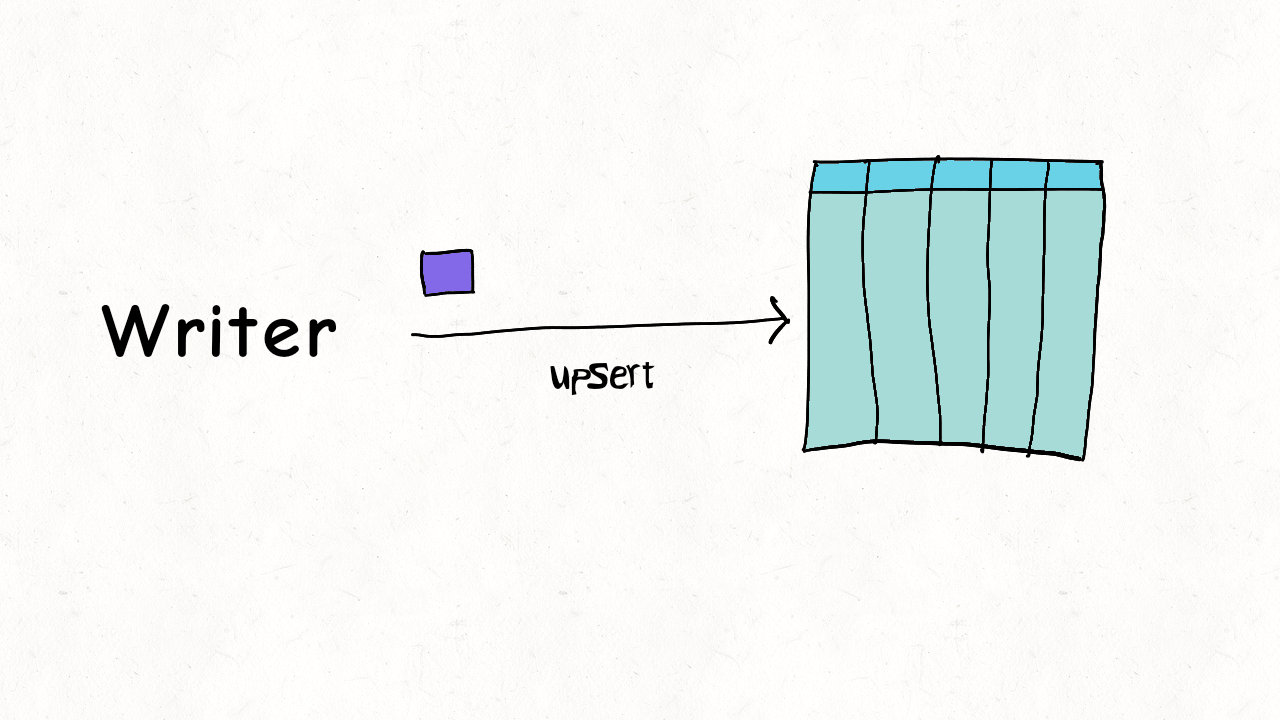 Writer
upsert